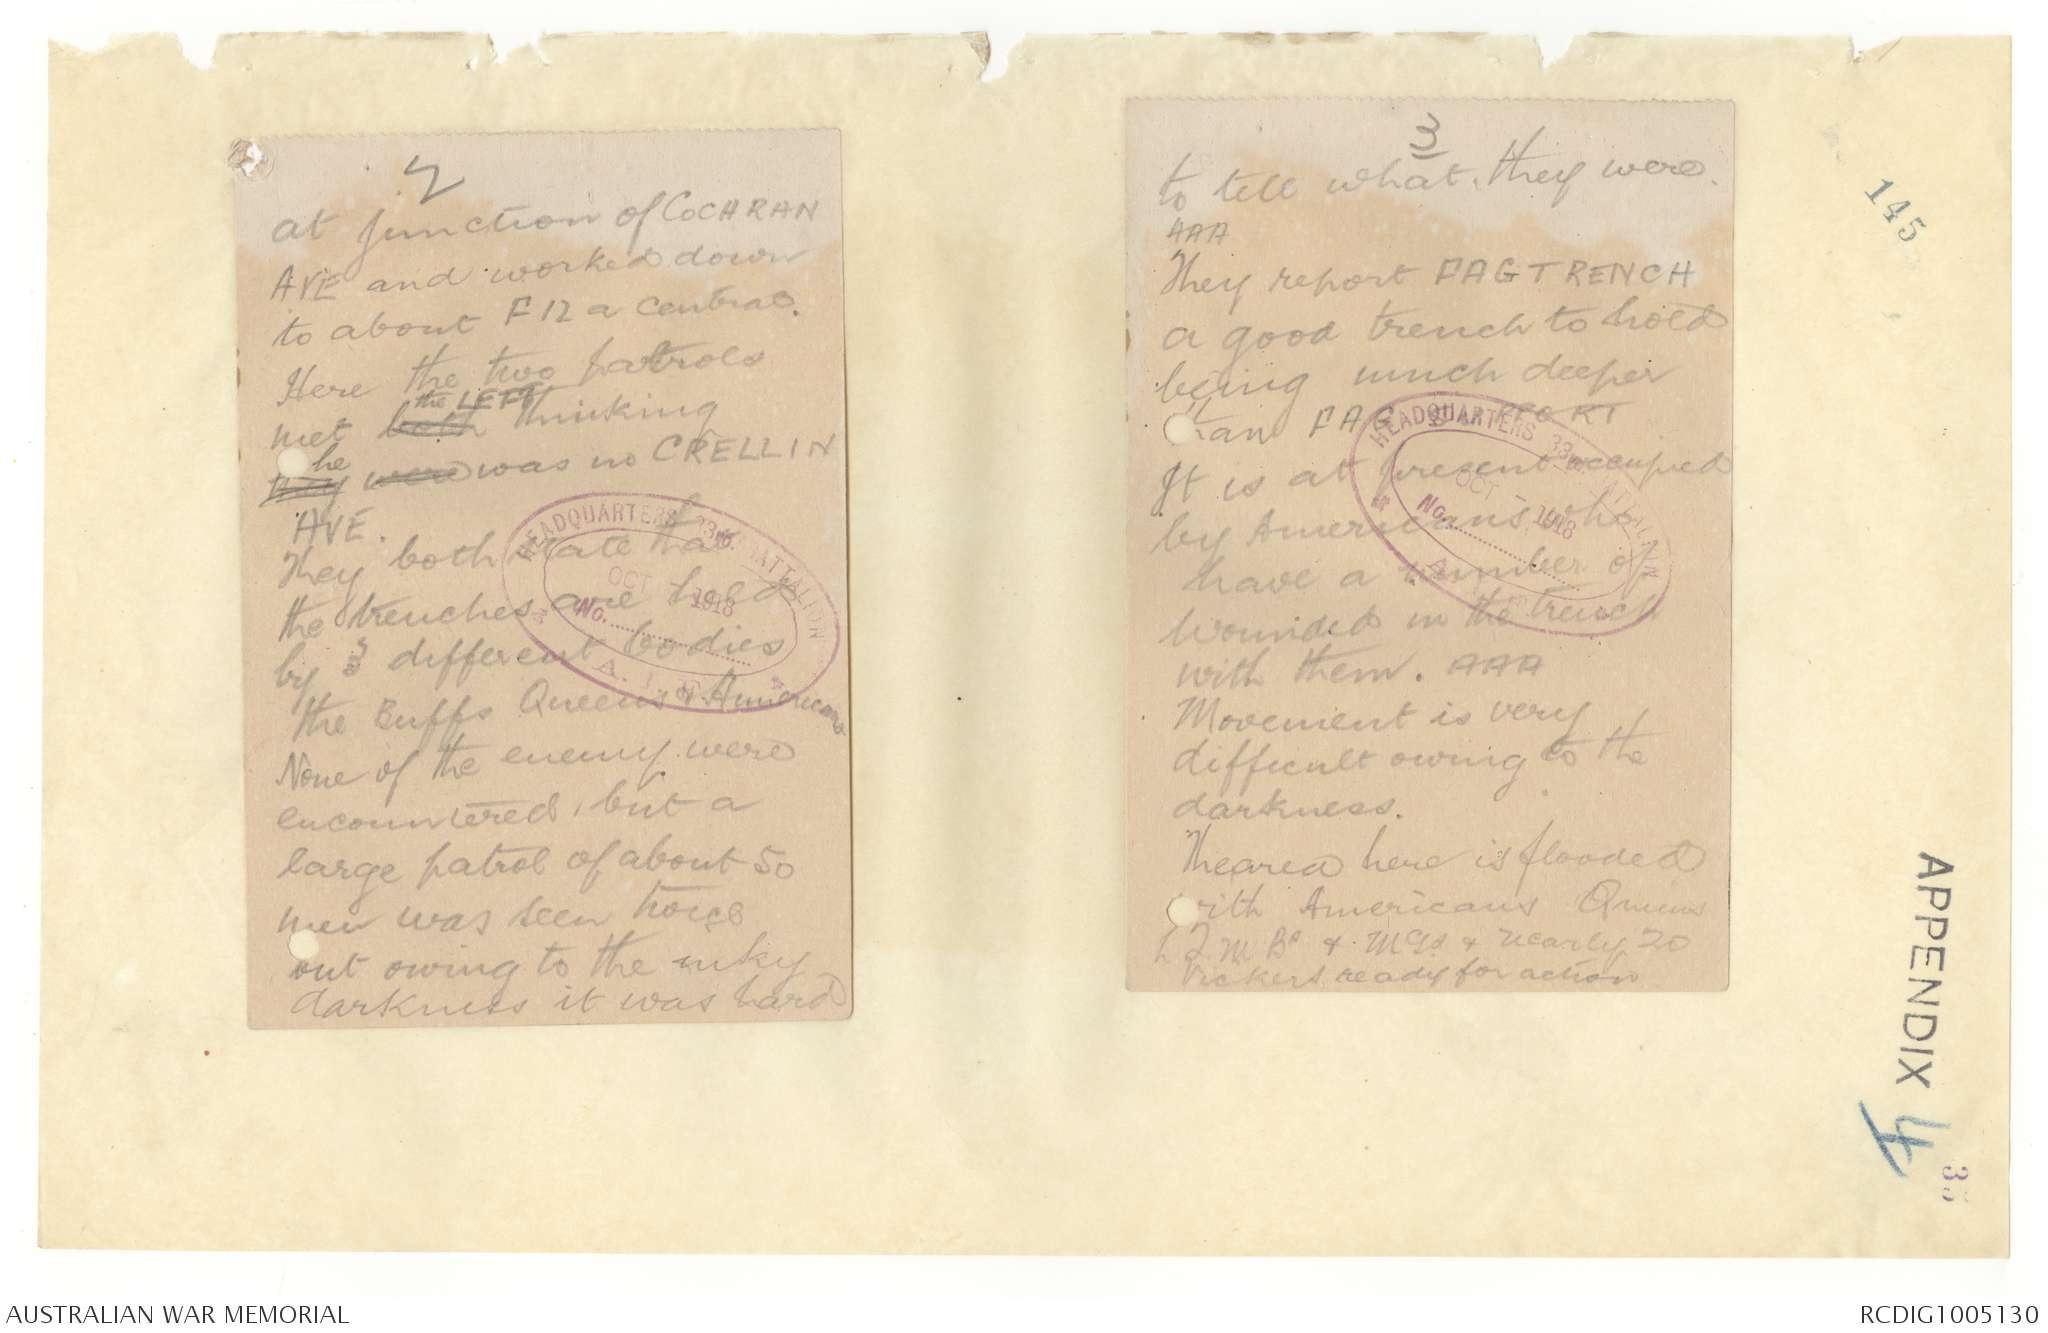 2
at junction of COCHRAN
AVE and worked down
to about F12 a central.
Here the two patrols
the LEFT
met both thinking
he
they were was no CRELLIN
AVE.
They both state that
the trenches are held
by 3 different bodies
the Buffs Queens & Americans
None of the enemy were
encountered, but a
large patrol of about 50
men was seen twice
but owing to the inky
darkness it was hard
HEADQUARTERS 33rd BATTALION
OCT 1918
No.
A. I. F.
3
to tell what they were.
AAA
They report FAG TRENCH
a good trench to hold
being much deeper
than FAG
It is at present occupied
by Americans who
have a number of
wounded in the trench
with them. AAA
Movement is very
difficult owing to the
darkness.
The area here is flooded
with Americans Queens
& MGs & nearly 20
Vickers ready for action
HEADQUARTERS 33rd BATTALION
OCT 1918
No.
A.
145
APPENDIX 4
AUSTRALIAN WAR MEMORIAL
RCDIG1005130